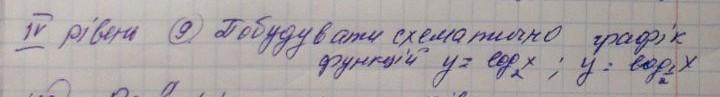 IV рівень ⑨ Побудувати схематично графік
функцій y = log₂x ; y = log½x